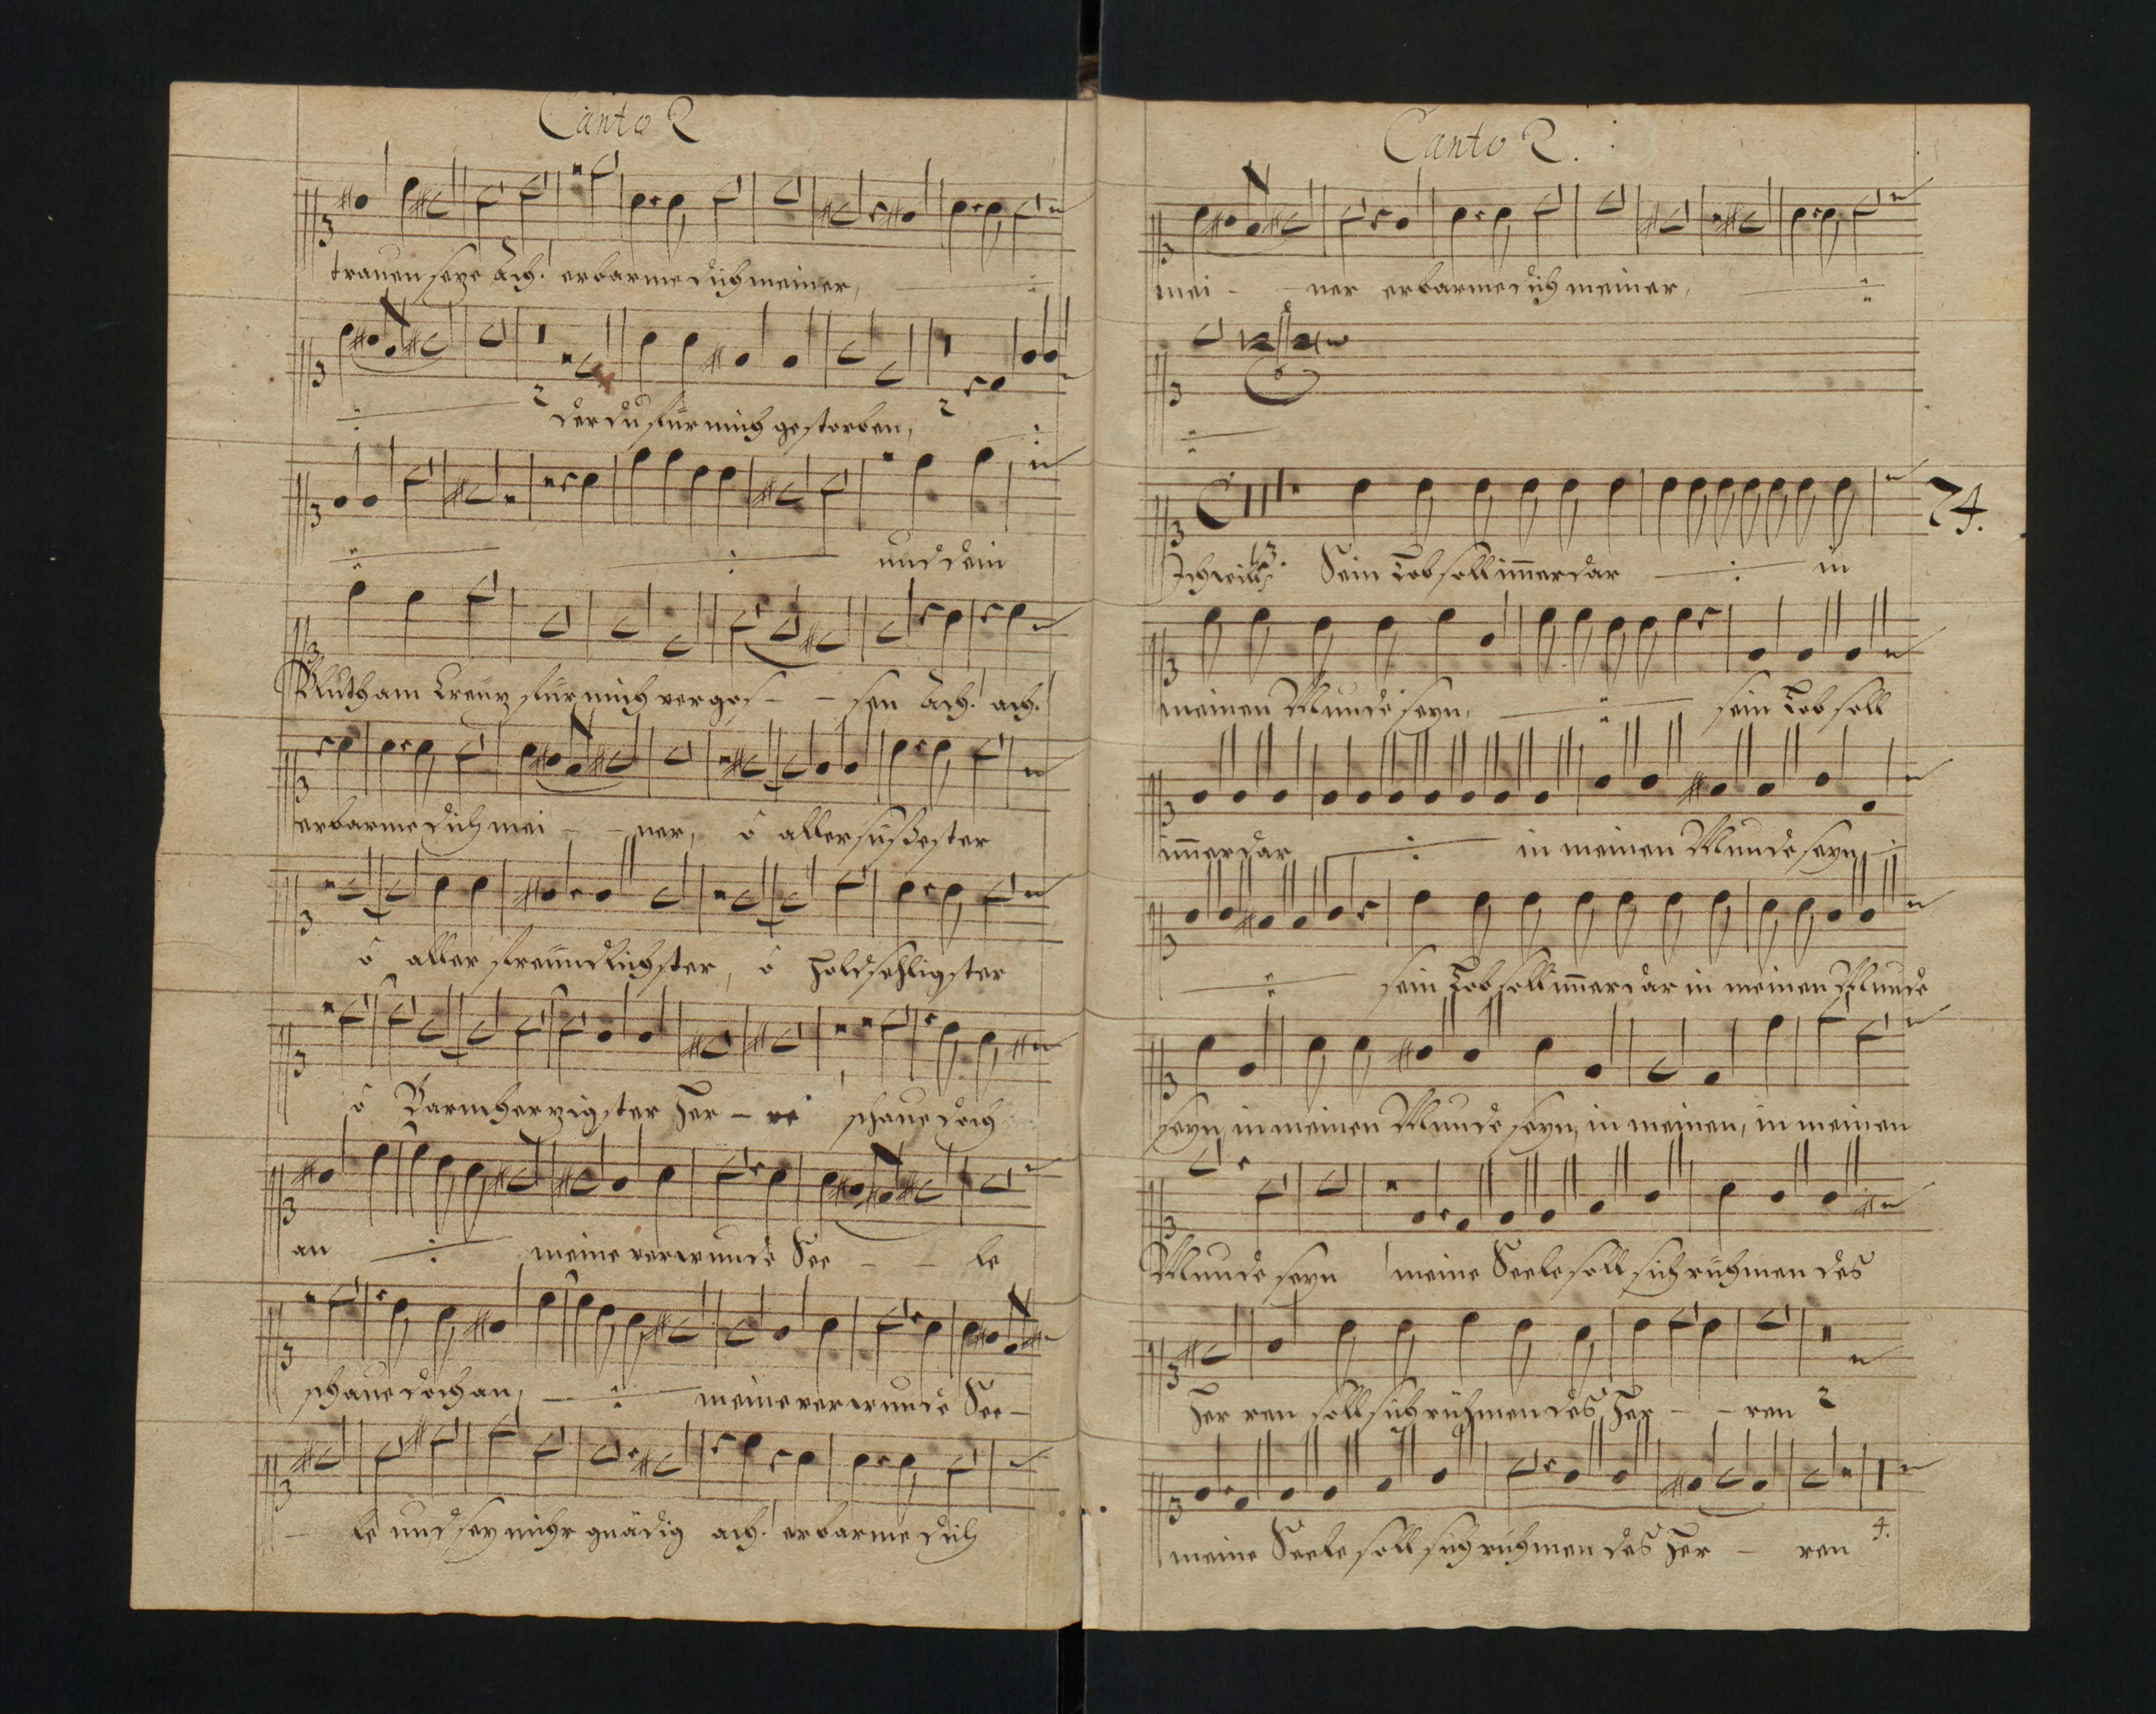 Canto 2
trauen seye Ach! erbarme dich meiner,
2 der du fur mich gestorben, 2
und dein
Bluth am Creuz fur mich vergos - - sen Ach! ach!
erbarme dich mei - - ner, ô aller süßester
ô aller freundlichster, ô holdsehligster
ô Barmherzigster Her - re schaue doch
an meine verwunde See - - le
schaue doch an, meine verwunde See -
- le und sey mihr gnädig ach! erbarme dich
Canto 2.
mei - - ner erbarme dich meiner,
74.
Ich will Sein Lob soll im̄erdar in
meinen Munde seyn, sein Lob soll
im̄erdar in meinen Munde seyn
sein Lob soll im̄erdar in meinen Munde
seyn, in meinen Munde seyn, in meinen, in meinen
Munde seyn meine Seele soll sich rühmen des
Her ren soll sich rühmen des Her - - ren 2
meine Seele soll sich rühmen des Her - ren 4.